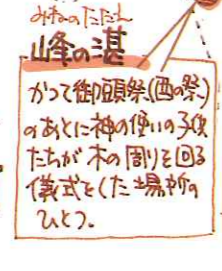 みねのたたえ
峰の湛
かつて御頭祭(酉の祭)
のあとに神の使いの子供
たちが木の周りを回る
儀式をした場所の
ひとつ。